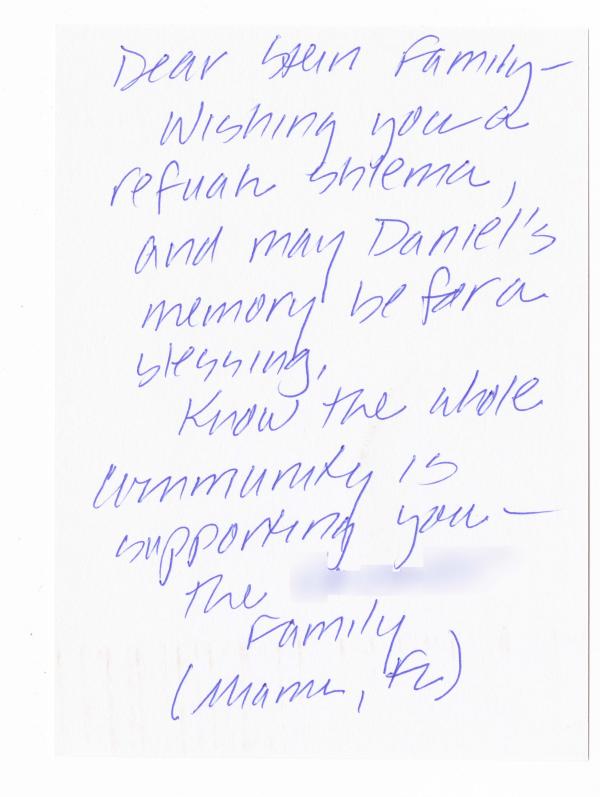 Dear Stein Family-
Wishing you a
refuah shlema,
and may Daniel's
memory be for a
blessing.
Know the whole
community is
supporting you-
the
Family
(Miami, FL)